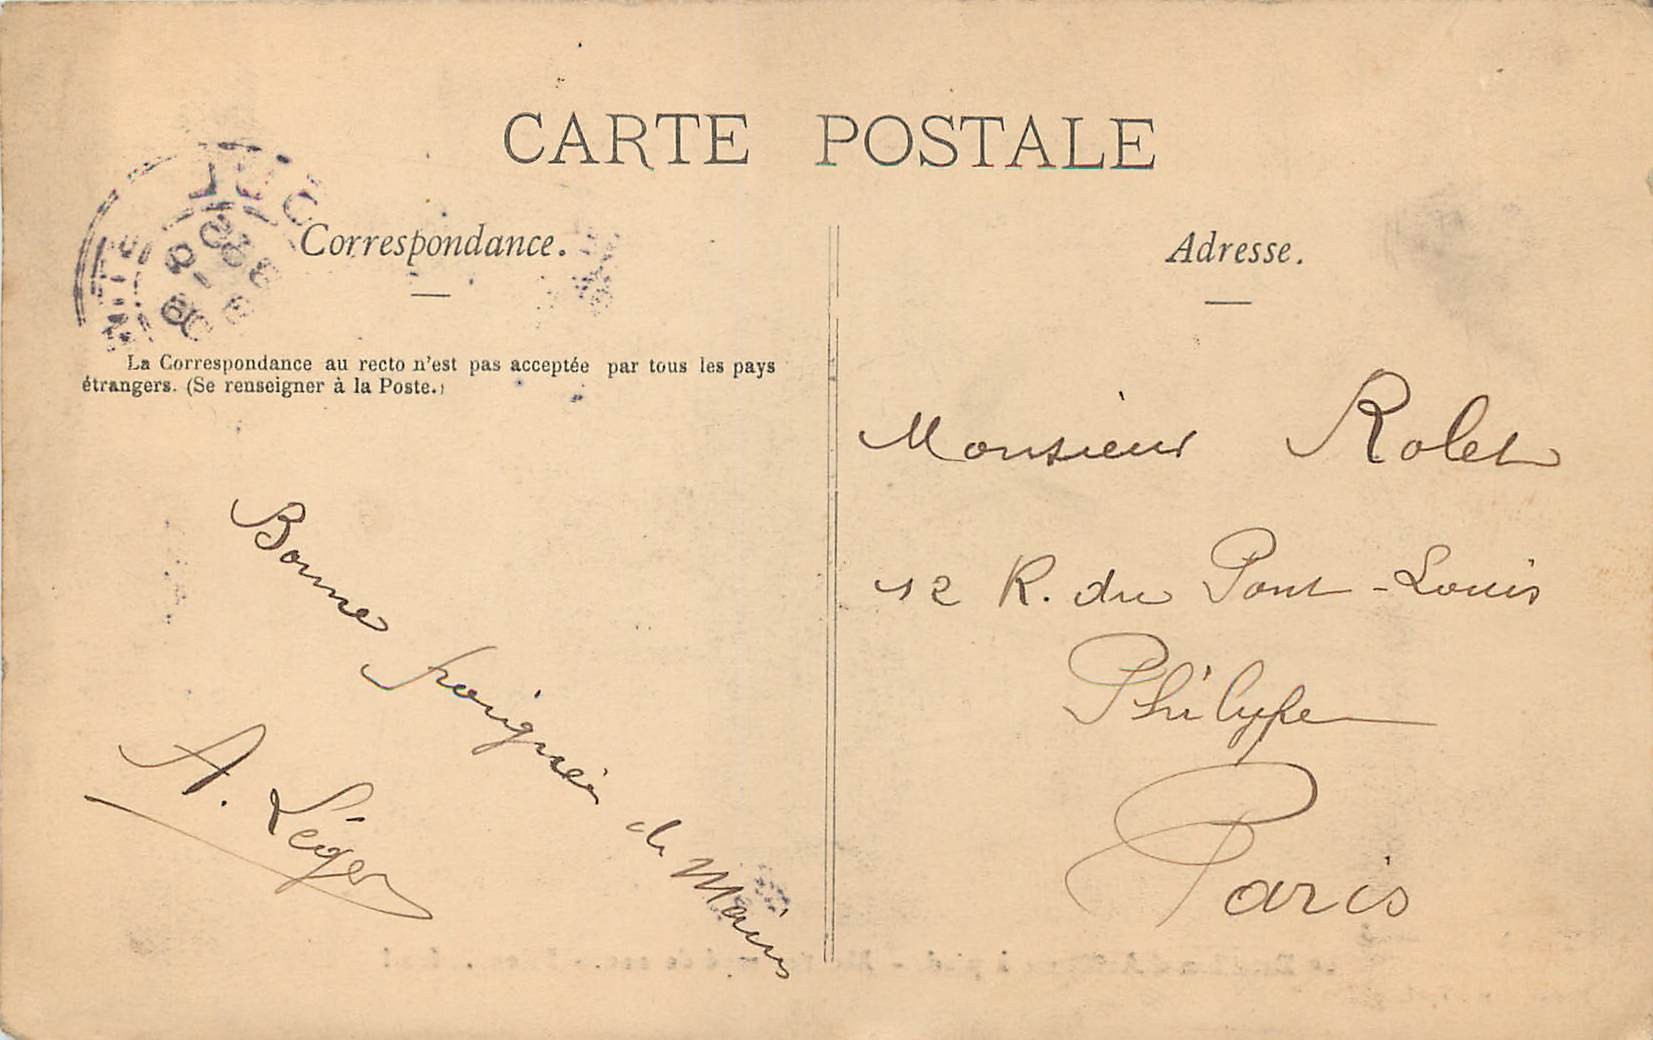 CARTE POSTALE
Correspondance.
La Correspondance au recto n'est pas acceptée par tous les pays
étrangers. (Se renseigner à la Poste.)
Bonne poignée de Mains
A. Léger
Adresse.
Monsieur Rolet
12 R. du Pont-Louis
Philype
Paris